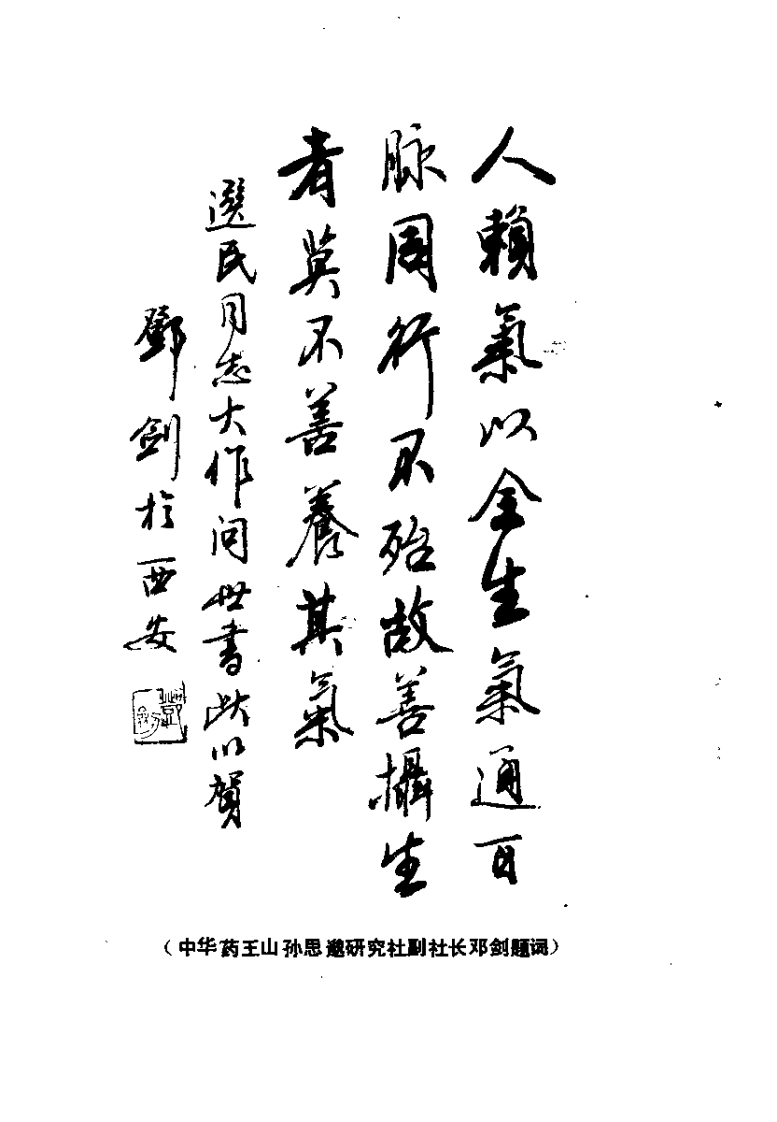 人賴氣以全生氣通百
脉周行不殆故善攝生
者莫不善養其氣
選民同志大作问世書此以賀
鄧劍於西安
鄧劍
（中华药王山孙思邈研究社副社长邓剑题词）